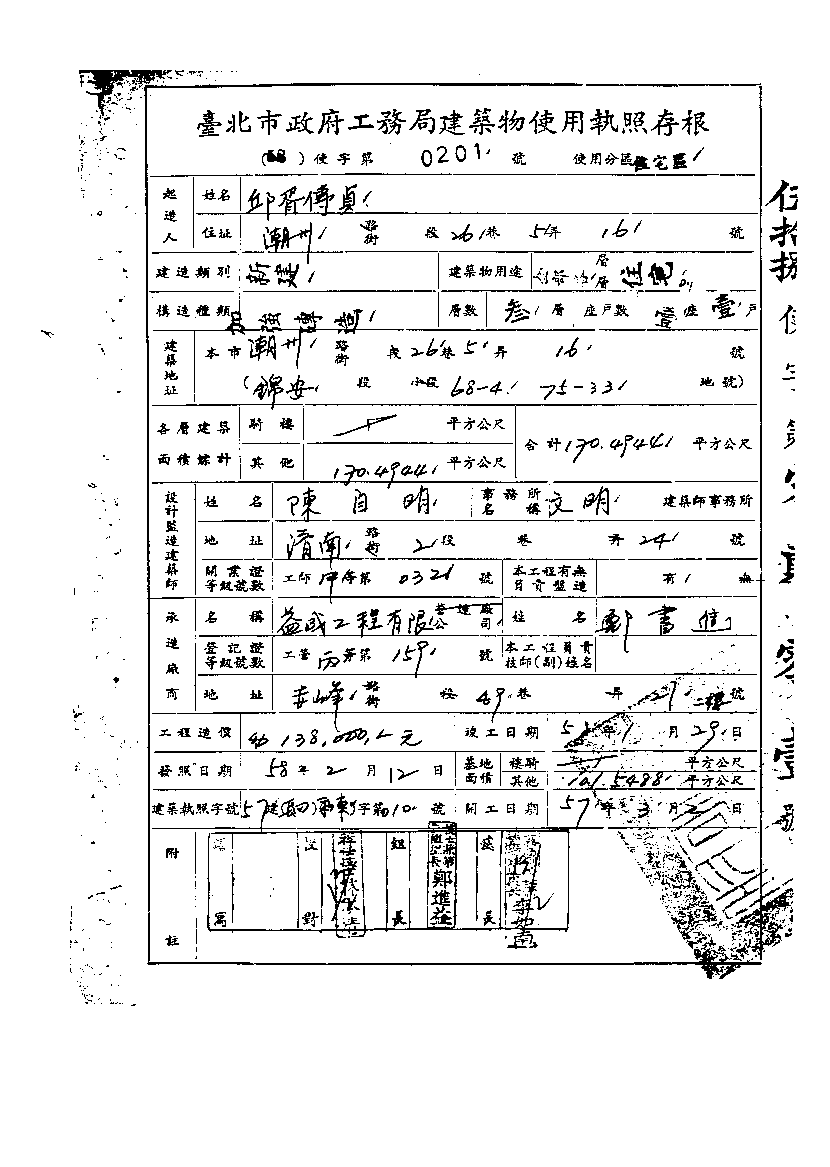 臺北市政府工務局建築物使用執照存根
(58)使字第 0201 號 使用分區住宅區
起造人 姓名 邱胥傳貞
住址 潮州 路街 段 26巷 5弄 16 號
建造類別 新建 建築物用途 層層 住宅
構造種類 加強磚造 層數 叁層 座戶數 壹座壹戶
建築地址 本市 潮州 路街 段 26巷 5弄 16 號
(錦安 段 小段 68-4 75-33 地號)
各層建築面積總計 騎樓 平方公尺 合計 170.4944 平方公尺
其他 170.4944 平方公尺
設計監造建築師 姓名 陳自明 事務所名稱 文明 建築師事務所
地址 濟南 路街 2段 巷 弄 24 號
開業證等級號數 工師 甲等第 0321 號 本工程有無負責監造 有 無
承造廠商 名稱 益成工程有限公司 營造廠 姓名 鄭書進
登記證等級號數 工營 丙等第 159 號 本工程負責技師(副)姓名
地址 赤峰 路街 段 49巷 弄 21 號 二樓
工程造價 138,000 元 竣工日期 58年1月29日
發照日期 58年2月12日 基地面積 騎樓 平方公尺
其他 101.5488 平方公尺
建築執照字號 57建 字第 10 號 開工日期 57年3月2日
附註
校對 組長 鄭進益 長
伍拾捌使字第 零 壹號